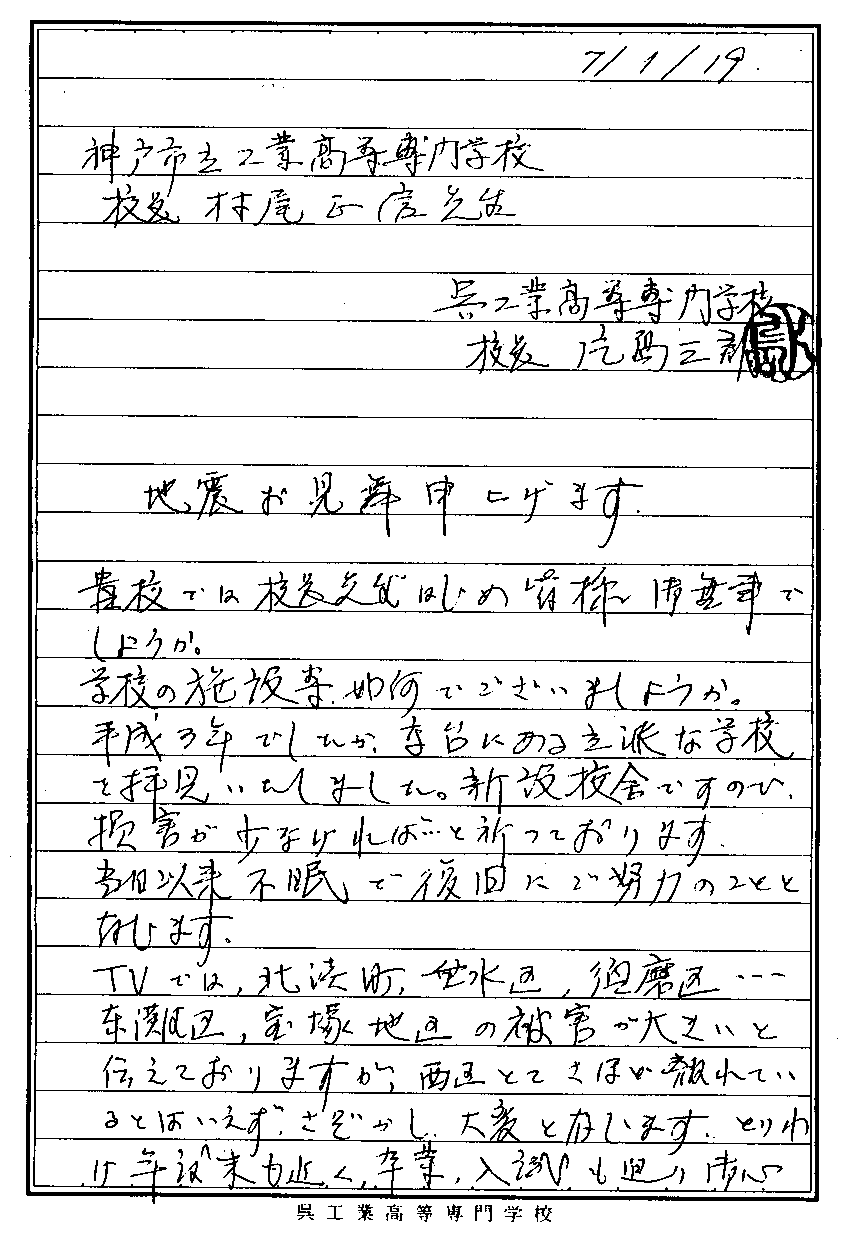 7/1/19.
神戸市立工業高等専門学校
校長 村尾正信先生
呉工業高等専門学校
校長 片島三朗
地震お見舞申し上げます.
貴校では校長先生はじめ皆様御無事で
しょうか。
学校の施設等.如何でございましょうか。
平成3年でしたか、高台にある立派な学校
を拝見いたしました。新設校舎ですので、
損害が少なければ…と祈っております.
当日以来不眠で復旧にご努力のことと
存じます.
TVでは,北淡町,垂水区,須磨区…
東灘区,宝塚地区の被害が大きいと
伝えておりますが,西区とてさほど離れてい
るとはいえず,さぞかし大変と存じます.とりわ
け年度末も近く,卒業,入試も迫り御心
呉工業高等専門学校